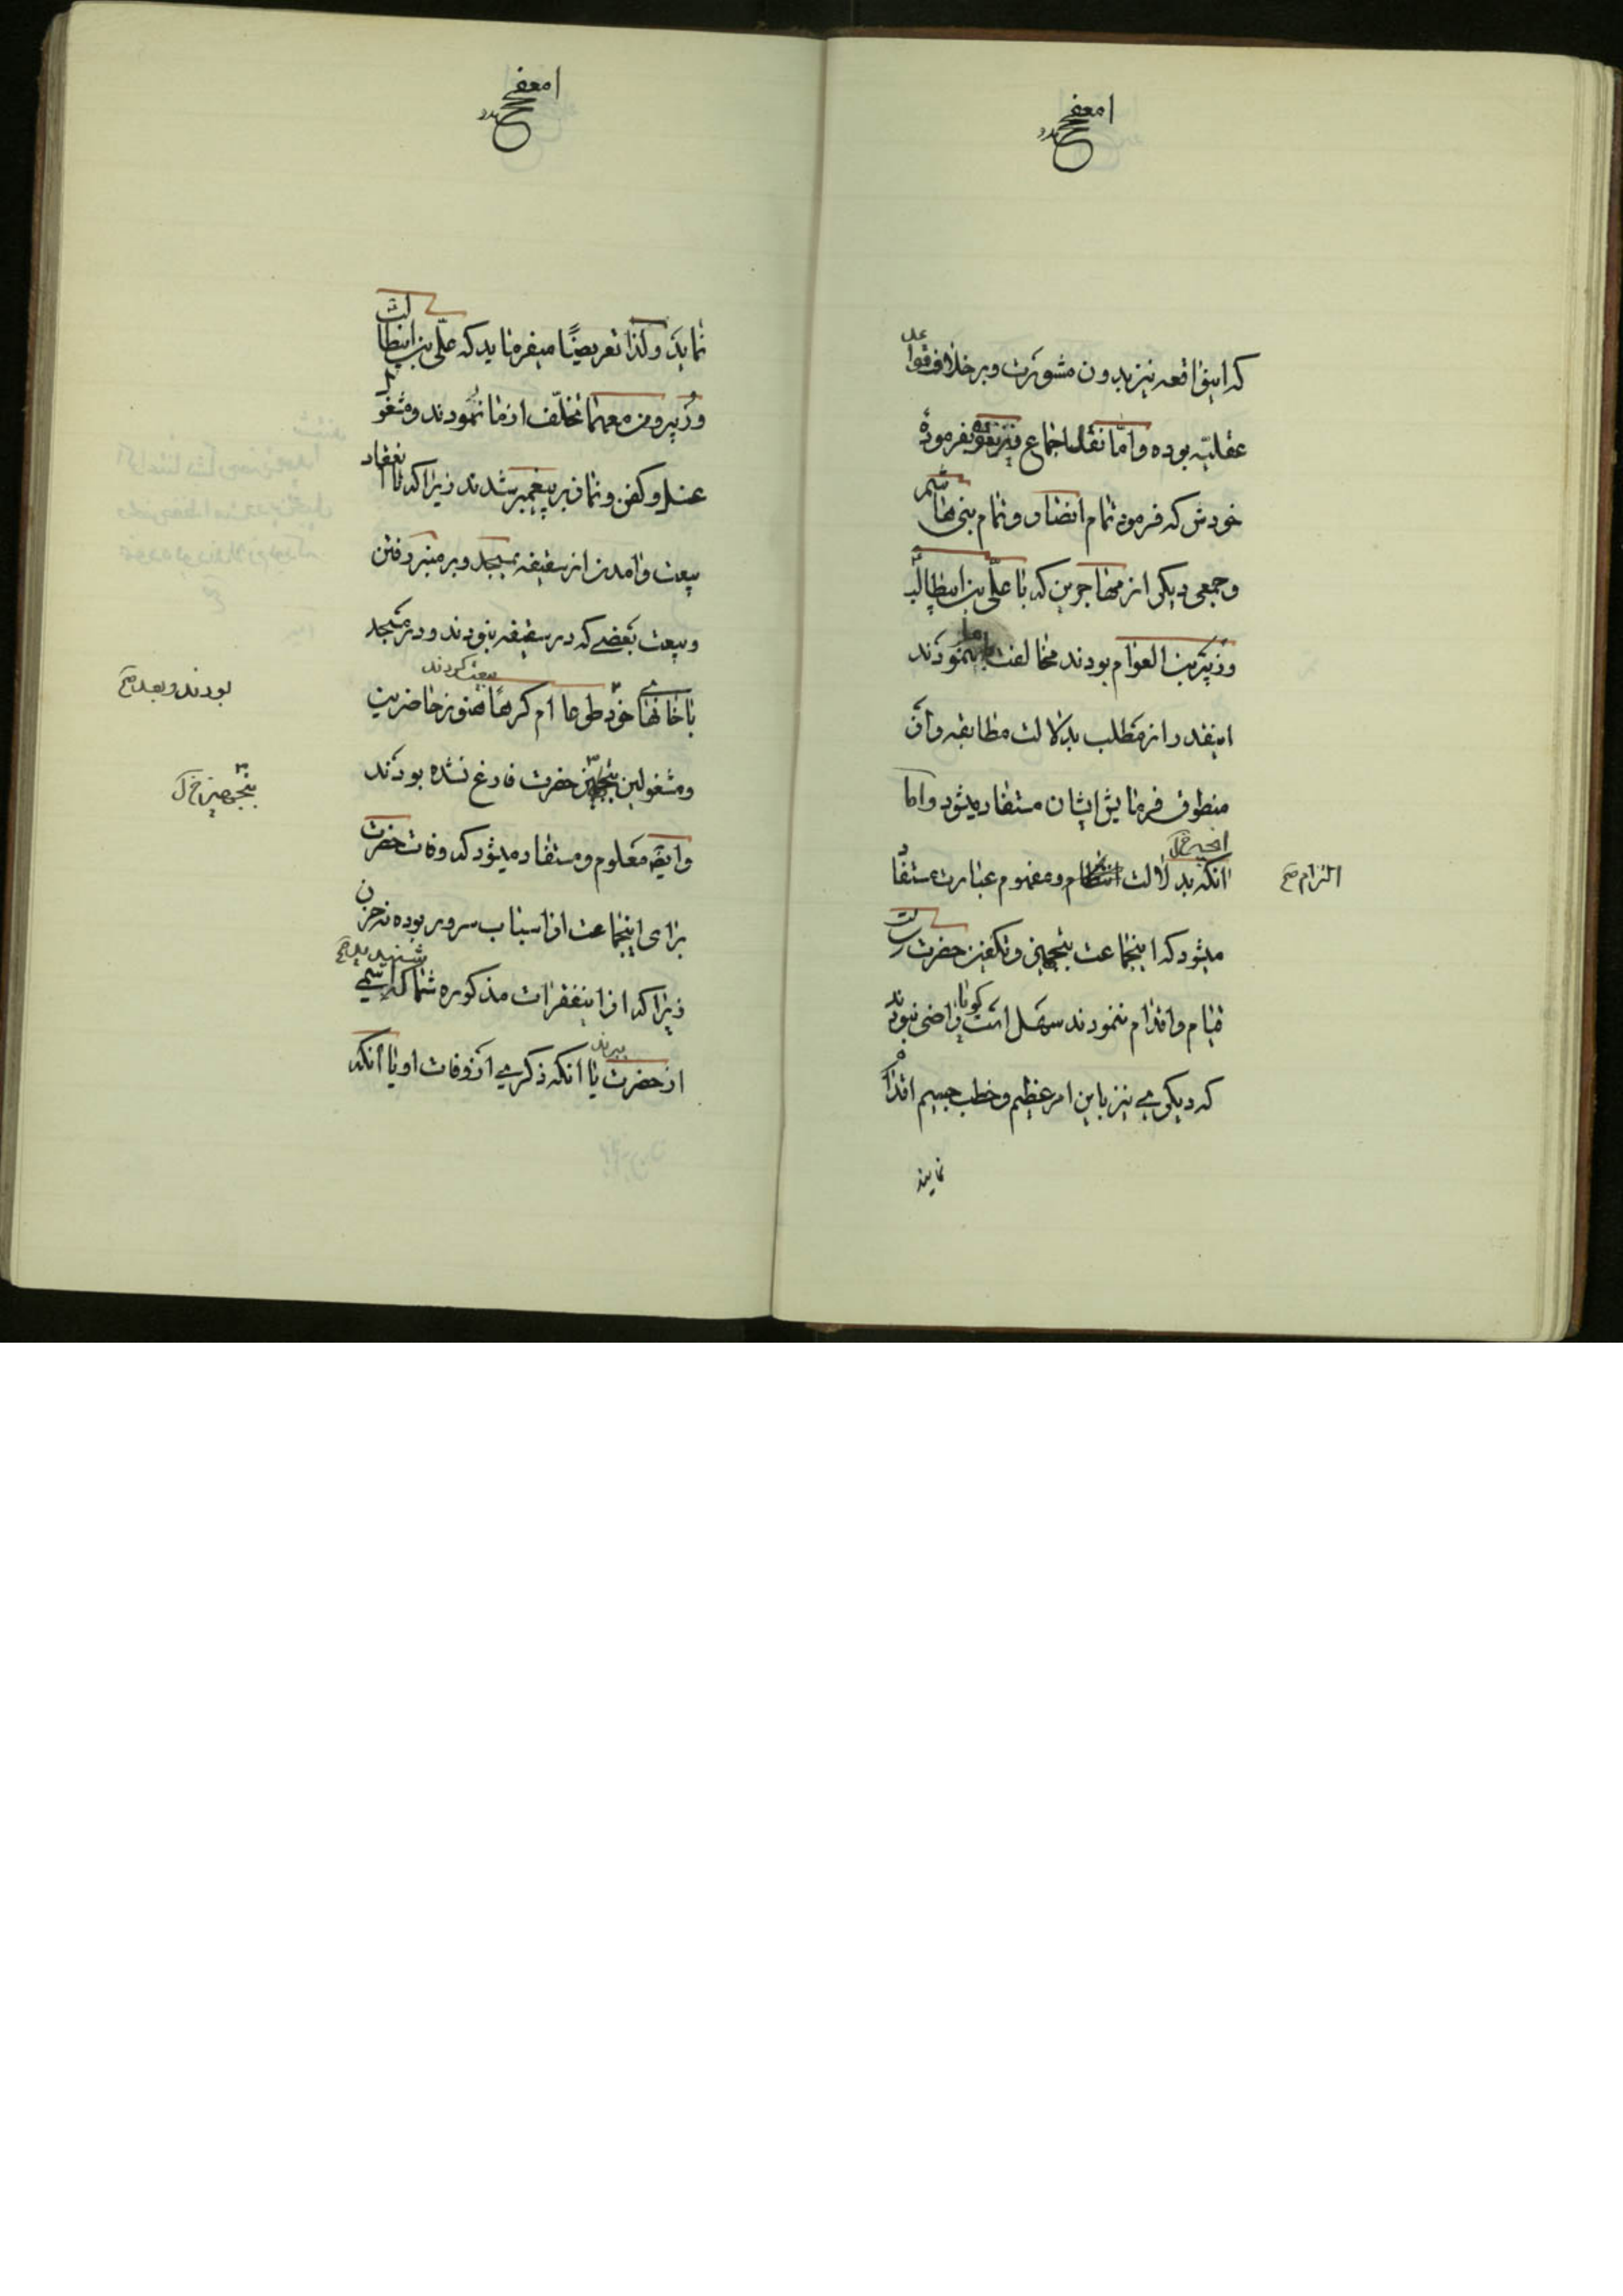 که اینواقعه نیز بدون مشورت و برخلاف قواعد
عقلیه بوده و اما نقل اجماع نیز بفرموده
خودش که فرموده تمام انصار و تمام بنی هاشم
و جمعی دیگر از مهاجرین که با علی بن ابیطالب
و زبیر بن العوام بودند مخالفت ما نمودند
اینقدر از مطلب بدلالت مطابقه و از
منطوق فرمایش ایشان مستفاد میشود و اما
آنکه بدلالت و مفهوم عبارت مستفاد
التزام صح
میشود که اینجماعت بتجهیز و تکفین حضرت رسالت
قیام و اقدام ننمودند سهل است گویا راضی نبودند
که دیگری نیز باین امر عظیم و خطب جسیم اقدام
نماید
نماید و کذا تعریضًا میفرماید که علی بن ابیطالب
و زبیر و من معهما تخلف از ما نمودند و مشغول
غسل و کفن و نماز بر پیغمبر شدند زیرا که تا انعقاد
بیعت و امدن از سقیفه بمسجد و بر منبر رفتن
و بیعت بعضی که در سقیفه نبودند و در مسجد
بودند و بعد صح
یا خانهای خود طوعا ام کرهًا بیعت کردند هنوز حاضرین
و مشغولین بتجهیز حضرت فارغ نشده بودند
بتجهیز خ ل
و ایضا معلوم و مستفاد میشود که وفات حضرت
برای اینجماعت از اسباب سرور بوده نه حزن
زیرا که از اینفقرات مذکوره شما که شنیدید اسمی
از حضرت ببرند یا آنکه ذکری از وفات او یا آنکه